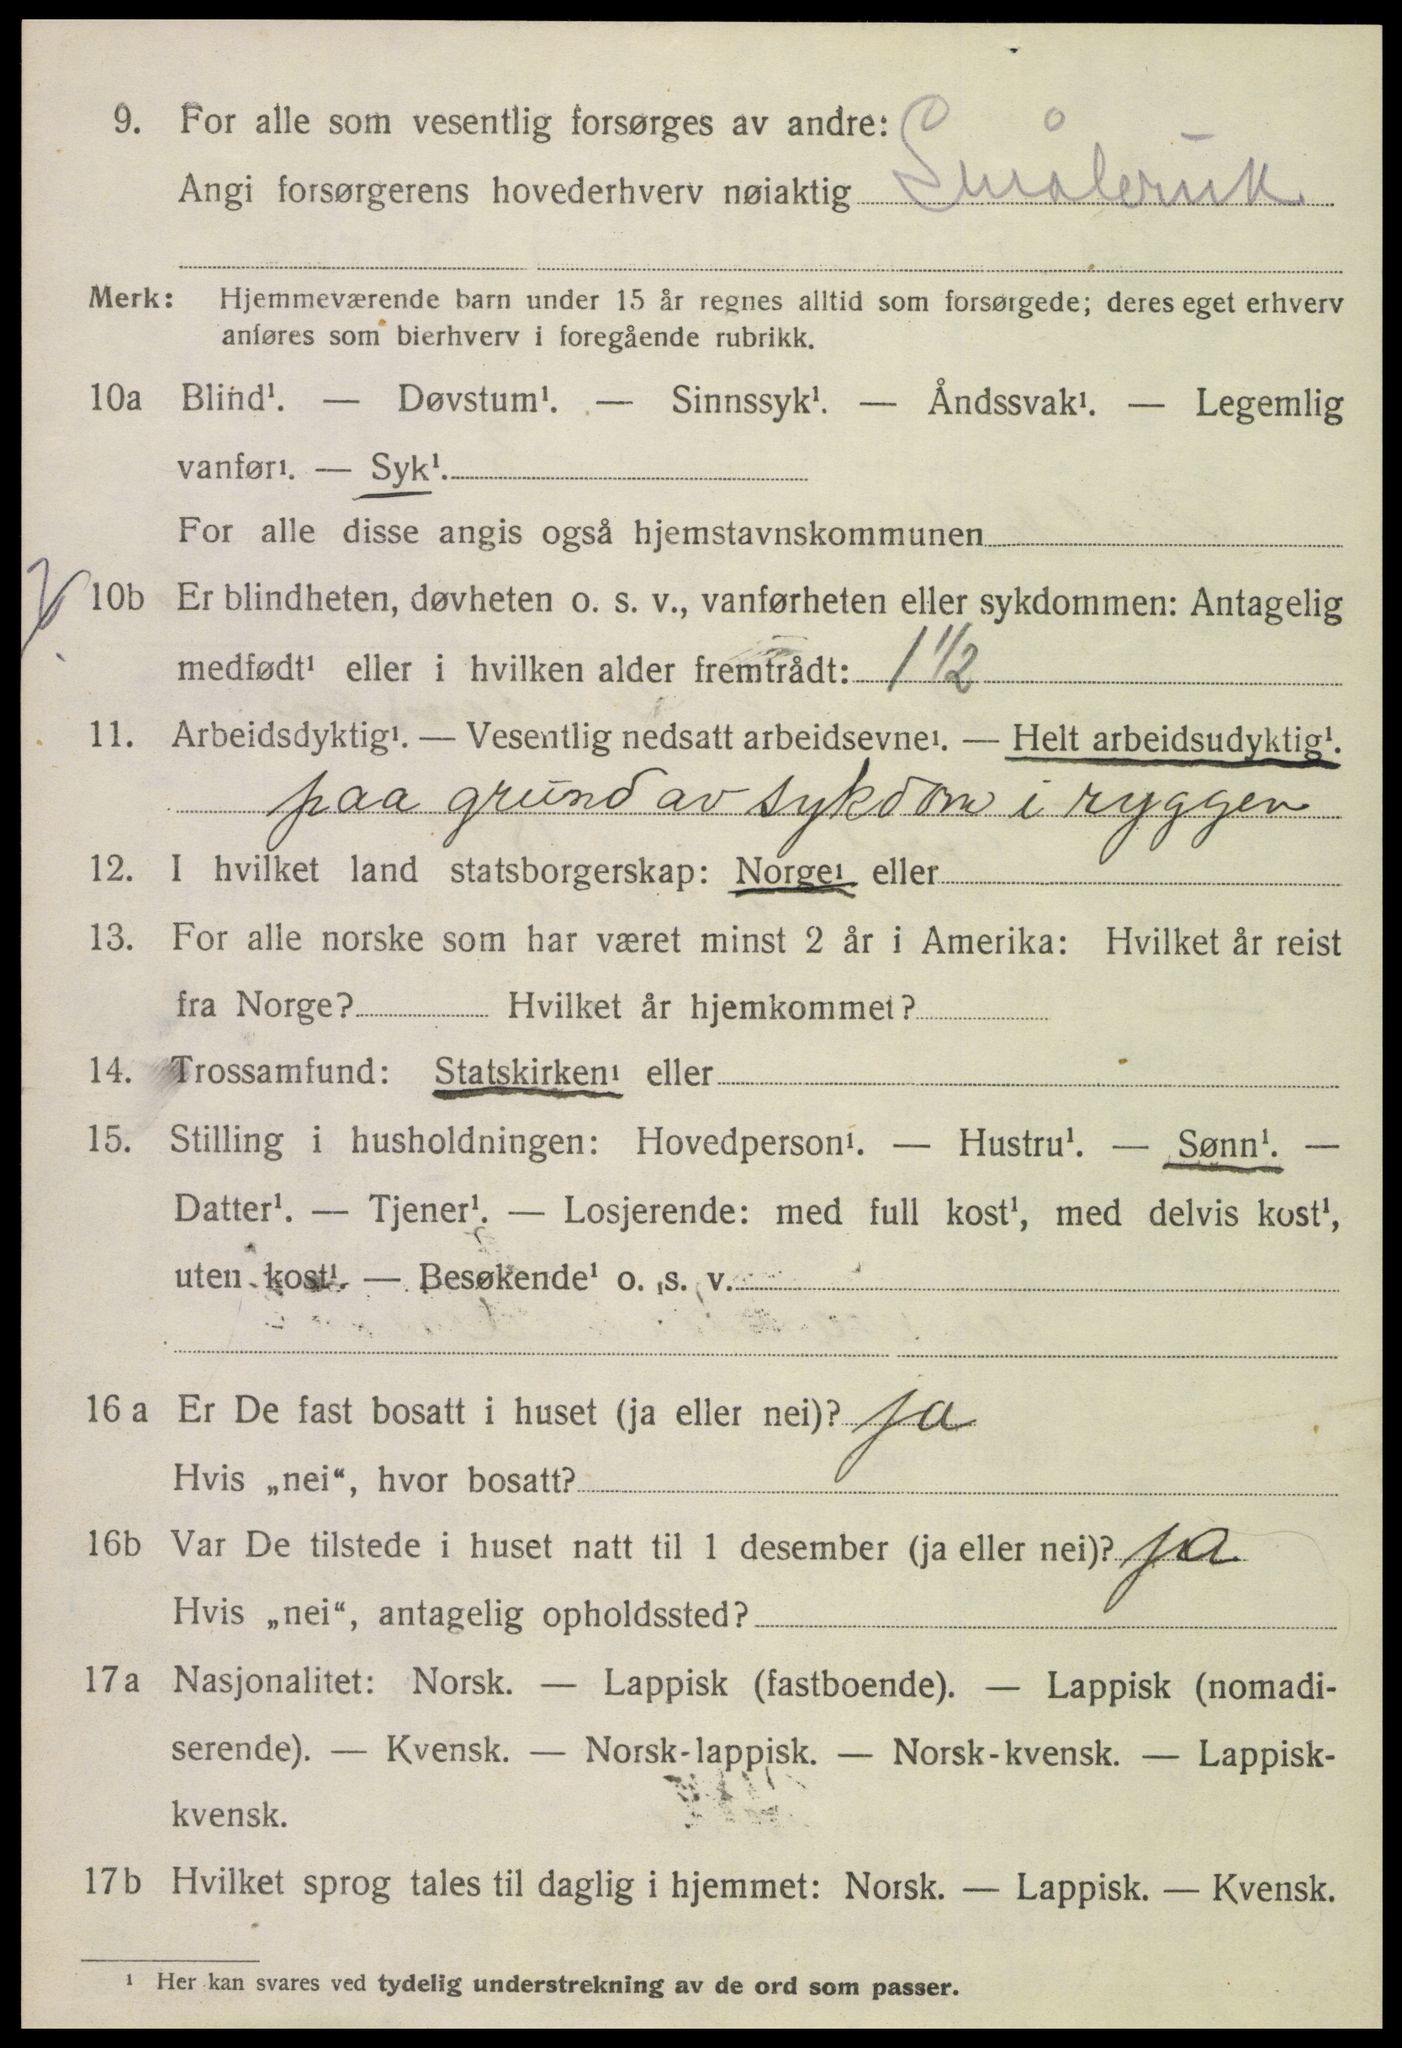 9. For alle som vesentlig forsørges av andre:
Angi forsørgerens hovederhverv nøiaktig Småbruk
Merk: Hjemmeværende barn under 15 år regnes alltid som forsørgede; deres eget erhverv
anføres som bierhverv i foregående rubrikk.
10a Blind¹. — Døvstum¹. — Sinnssyk¹. — Åndssvak¹. — Legemlig
vanfør¹. — Syk¹.
For alle disse angis også hjemstavnskommunen
10b Er blindheten, døvheten o. s. v., vanførheten eller sykdommen: Antagelig
medfødt¹ eller i hvilken alder fremtrådt: 1 1/2
11. Arbeidsdyktig¹. — Vesentlig nedsatt arbeidsevne¹. — Helt arbeidsudyktig¹.
paa grund av sykdom i ryggen
12. I hvilket land statsborgerskap: Norge¹ eller
13. For alle norske som har været minst 2 år i Amerika: Hvilket år reist
fra Norge? Hvilket år hjemkommet?
14. Trossamfund: Statskirken¹ eller
15. Stilling i husholdningen: Hovedperson¹. — Hustru¹. — Sønn¹. —
Datter¹. — Tjener¹. — Losjerende: med full kost¹, med delvis kost¹,
uten kost¹. — Besøkende¹ o. s. v.
16a Er De fast bosatt i huset (ja eller nei)? ja
Hvis „nei“, hvor bosatt?
16b Var De tilstede i huset natt til 1 desember (ja eller nei)? ja
Hvis „nei“, antagelig opholdssted?
17a Nasjonalitet: Norsk. — Lappisk (fastboende). — Lappisk (nomadi-
serende). — Kvensk. — Norsk-lappisk. — Norsk-kvensk. — Lappisk-
kvensk.
17b Hvilket sprog tales til daglig i hjemmet: Norsk. — Lappisk. — Kvensk.
¹ Her kan svares ved tydelig understrekning av de ord som passer.